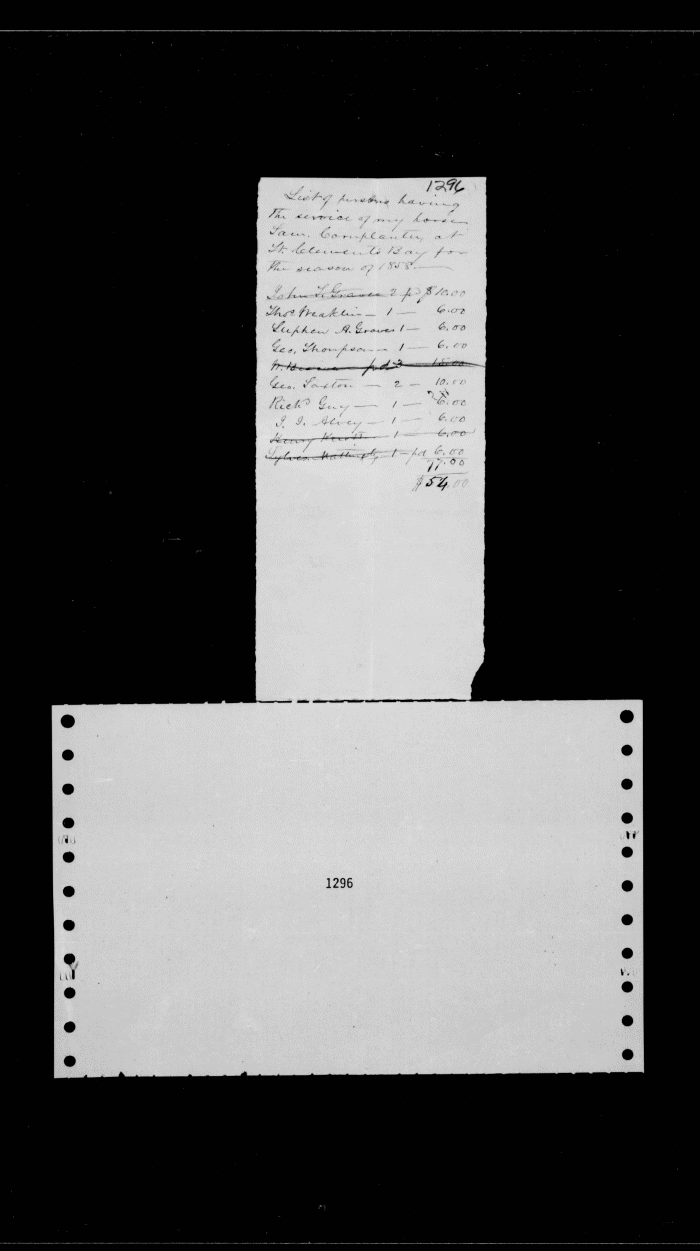 1296
List of persons having
the service of my horse
Sam. Cornplanter, at
St. Clements Bay for
the season of 1858
John L. Graves 2 pd $10.00
Thos Weaklin — 1 — 6.00
Stephen A. Graves 1 — 6.00
Geo. Thompson — 1 — 6.00
pd 3 15.00
Geo. Saxton — 2 — 10.00
Richd Guy — 1 — 6.00
J. J. Alvey — 1 — 6.00
Henry 1 — 6.00
Sylves. Mattingly 1 — pd 6.00
77.00
$54.00
1296